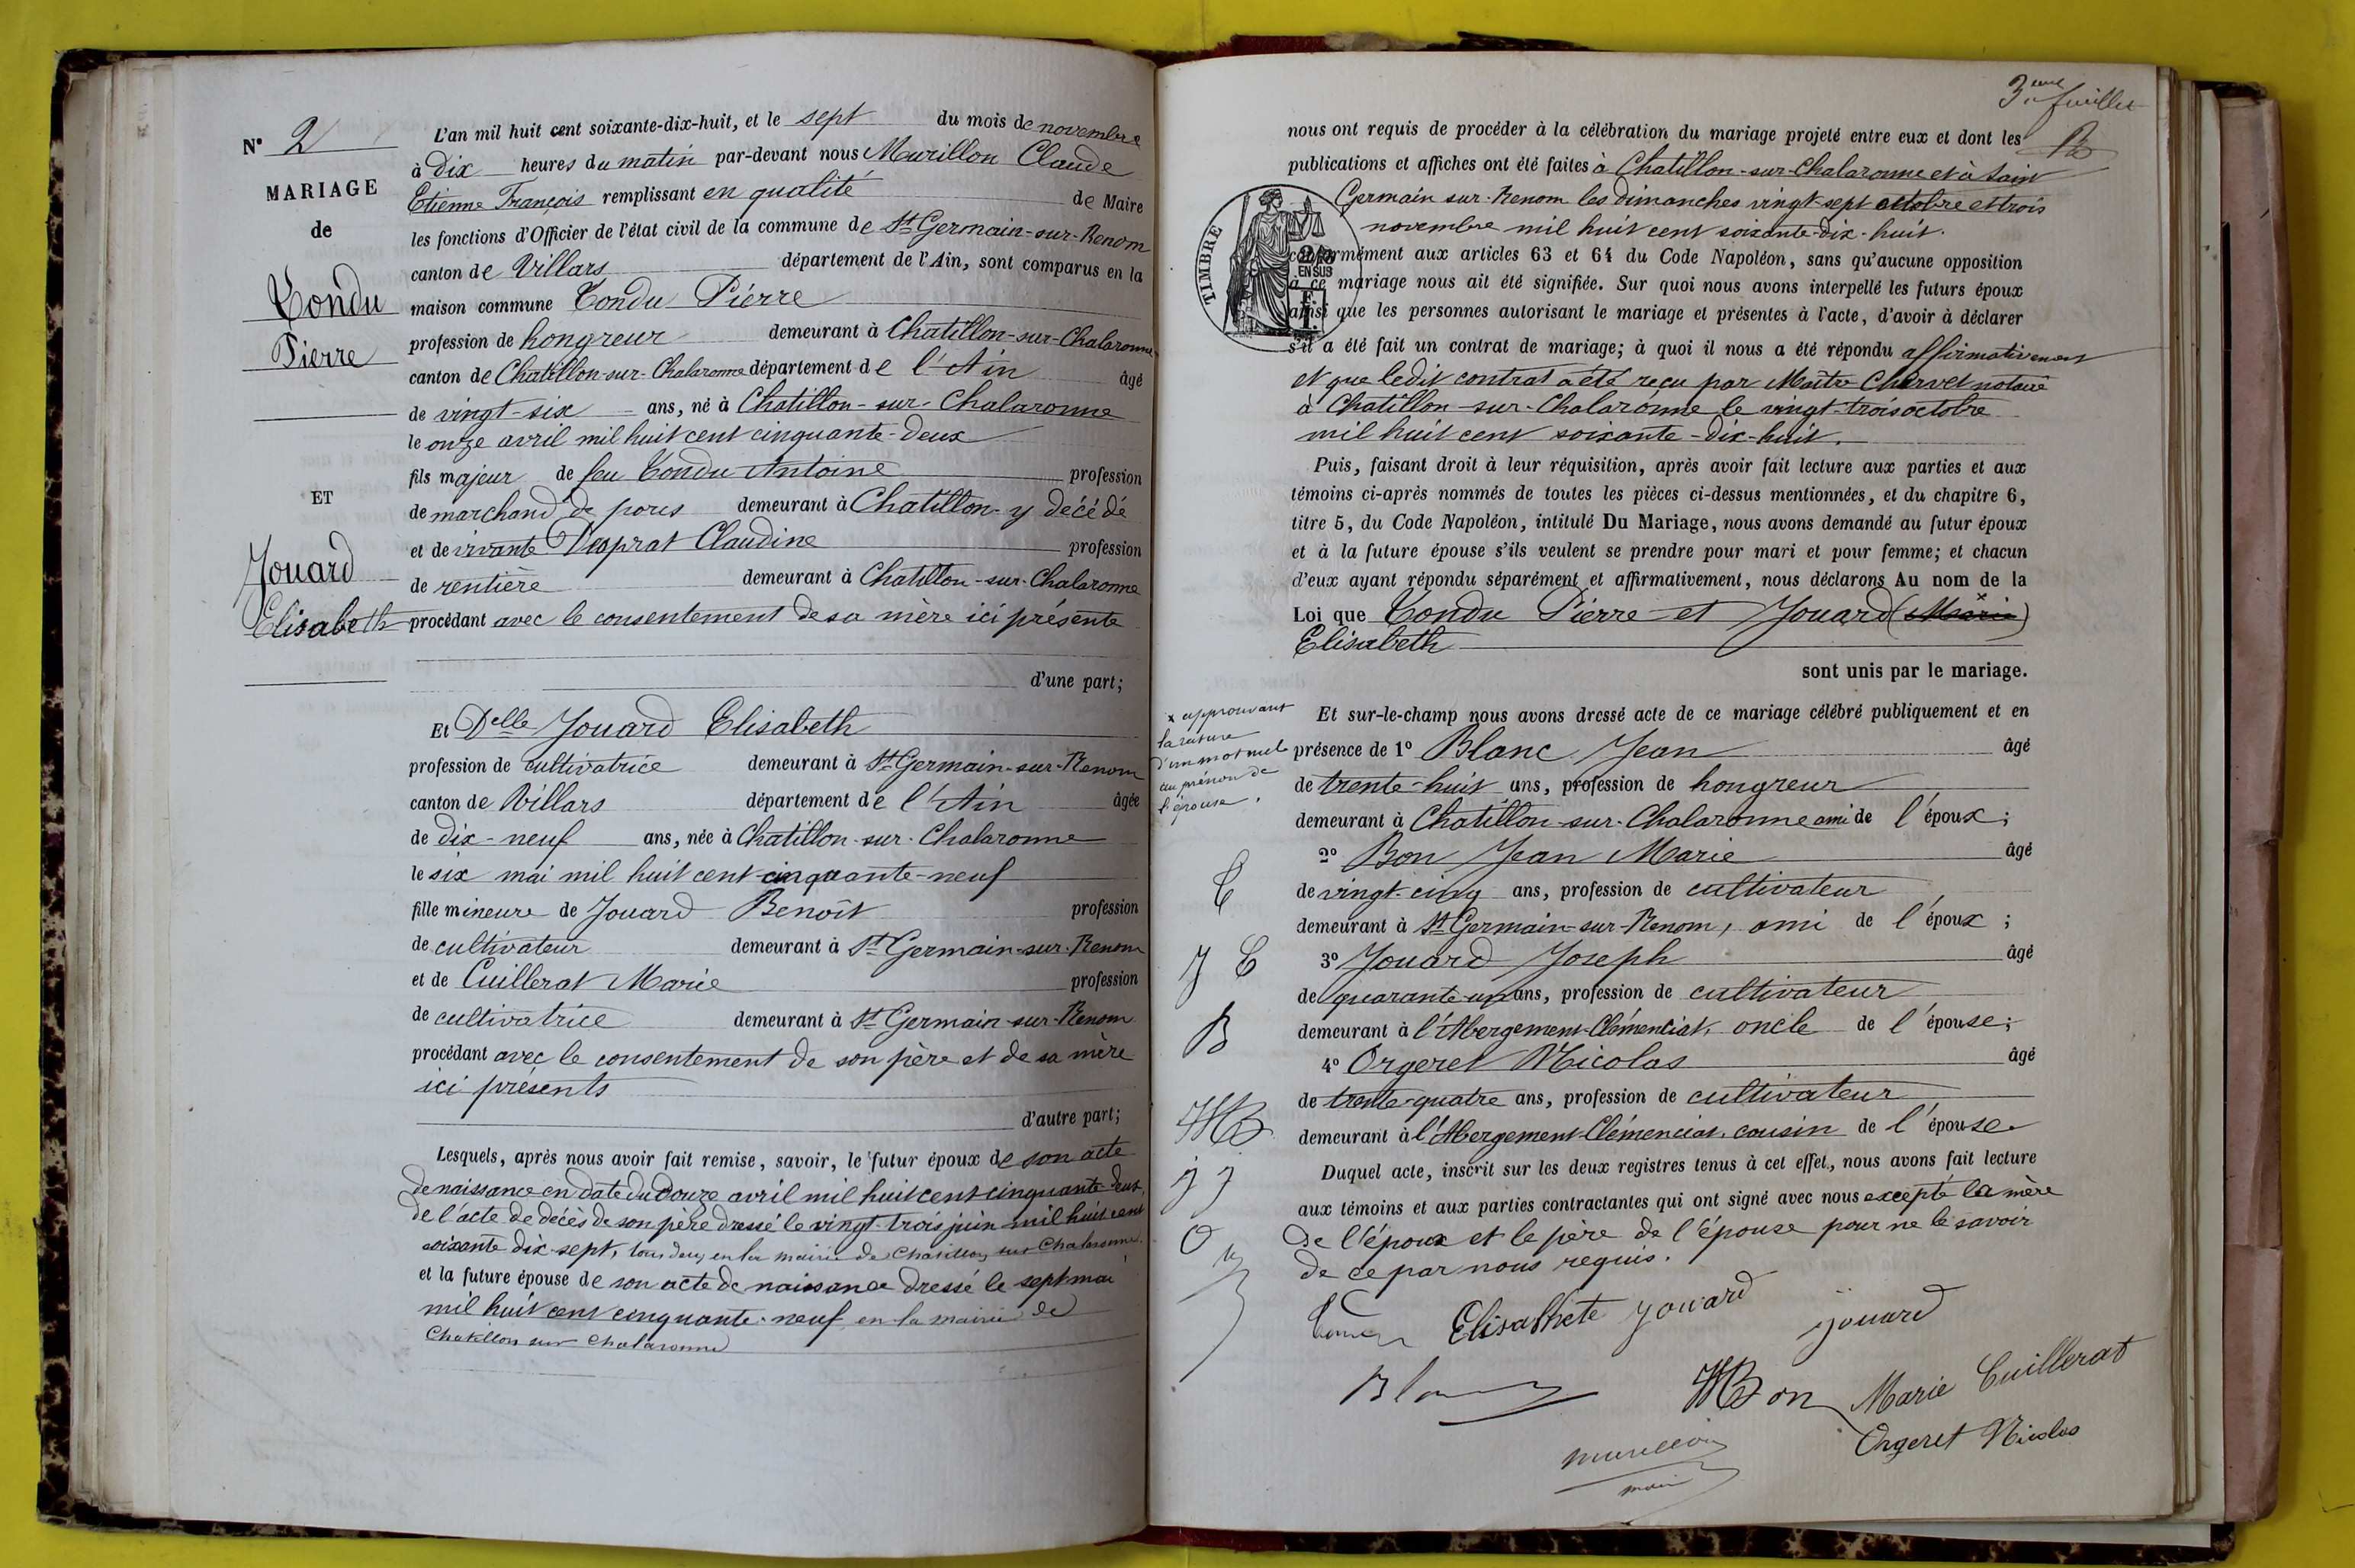 N° 2
MARIAGE
de
Tondu
Pierre
ET
Jouard
Elisabeth
L'an mil huit cent soixante-dix-huit, et le sept du mois de novembre
à dix heures du matin par-devant nous Murillon Claude
Etienne François remplissant en qualité de Maire
les fonctions d'Officier de l'état civil de la commune de St Germain-sur-Renom
canton de Villars département de l'Ain, sont comparus en la
maison commune Tondu Pierre
profession de hongreur demeurant à Chatillon-sur-Chalaronne
canton de Chatillon-sur-Chalaronne département de l'Ain âgé
de vingt-six ans, né à Chatillon-sur-Chalaronne
le onze avril mil huit cent cinquante-deux
fils majeur de feu Tondu Antoine profession
de marchand de porcs demeurant à Chatillon y décédé
et de vivante Duprat Claudine profession
de rentière demeurant à Chatillon-sur-Chalaronne
procédant avec le consentement de sa mère ici présente
d'une part;
Et Delle Jouard Elisabeth
profession de cultivatrice demeurant à St Germain-sur-Renom
canton de Villars département de l'Ain âgée
de dix-neuf ans, née à Chatillon-sur-Chalaronne
le six mai mil huit cent cinquante-neuf
fille mineure de Jouard Benoît profession
de cultivateur demeurant à St Germain-sur-Renom
et de Cuillerat Marie profession
de cultivatrice demeurant à St Germain-sur-Renom
procédant avec le consentement de son père et de sa mère
ici présents
d'autre part;
Lesquels, après nous avoir fait remise, savoir, le futur époux de son acte
de naissance en date du douze avril mil huit cent cinquante-deux,
de l'acte de décès de son père dressé le vingt-trois juin mil huit cent
soixante dix-sept, tous deux en la mairie de Chatillon sur Chalaronne.
et la future épouse de son acte de naissance dressé le sept mai
mil huit cent cinquante-neuf en la mairie de
Chatillon sur Chalaronne
3eme feuillet
nous ont requis de procéder à la célébration du mariage projeté entre eux et dont les
publications et affiches ont été faites à Chatillon-sur-Chalaronne et à Saint
Germain sur-Renom les dimanches vingt-sept octobre et trois
novembre mil huit cent soixante-dix-huit.
TIMBRE
EN SUS
conformément aux articles 63 et 64 du Code Napoléon, sans qu'aucune opposition
à ce mariage nous ait été signifiée. Sur quoi nous avons interpellé les futurs époux
ainsi que les personnes autorisant le mariage et présentes à l'acte, d'avoir à déclarer
s'il a été fait un contrat de mariage; à quoi il nous a été répondu affirmativement
et que ledit contrat a été reçu par Maître Chervet notaire
à Chatillon-sur-Chalaronne le vingt-trois octobre
mil huit cent soixante-dix-huit.
Puis, faisant droit à leur réquisition, après avoir fait lecture aux parties et aux
témoins ci-après nommés de toutes les pièces ci-dessus mentionnées, et du chapitre 6,
titre 5, du Code Napoléon, intitulé Du Mariage, nous avons demandé au futur époux
et à la future épouse s'ils veulent se prendre pour mari et pour femme; et chacun
d'eux ayant répondu séparément et affirmativement, nous déclarons Au nom de la
Loi que Tondu Pierre et Jouard (Marie) x
Elisabeth
sont unis par le mariage.
x approuvant
la rature
d'un mot nul
au prénom de
l'épouse.
Et sur-le-champ nous avons dressé acte de ce mariage célébré publiquement et en
présence de 1° Blanc Jean âgé
de trente-huit ans, profession de hongreur
demeurant à Chatillon-sur-Chalaronne ami de l'époux;
2° Bon Jean Marie âgé
de vingt-cinq ans, profession de cultivateur
demeurant à St Germain-sur-Renom, ami de l'époux;
3° Jouard Joseph âgé
de quarante-un ans, profession de cultivateur
demeurant à l'Abergement-Clémenciat, oncle de l'épouse;
4° Orgeret Nicolas âgé
de trente-quatre ans, profession de cultivateur
demeurant à l'Abergement-Clémenciat, cousin de l'épouse
Duquel acte, inscrit sur les deux registres tenus à cet effet, nous avons fait lecture
aux témoins et aux parties contractantes qui ont signé avec nous excepté la mère
de l'époux et le père de l'épouse pour ne le savoir
de ce par nous requis.
T
J C
B
JMB
j j
O n
Elisabhete Jouard jjouard
Blanc JMBon Marie Cuillerat
Orgeret Nicolas
Murillon
maire